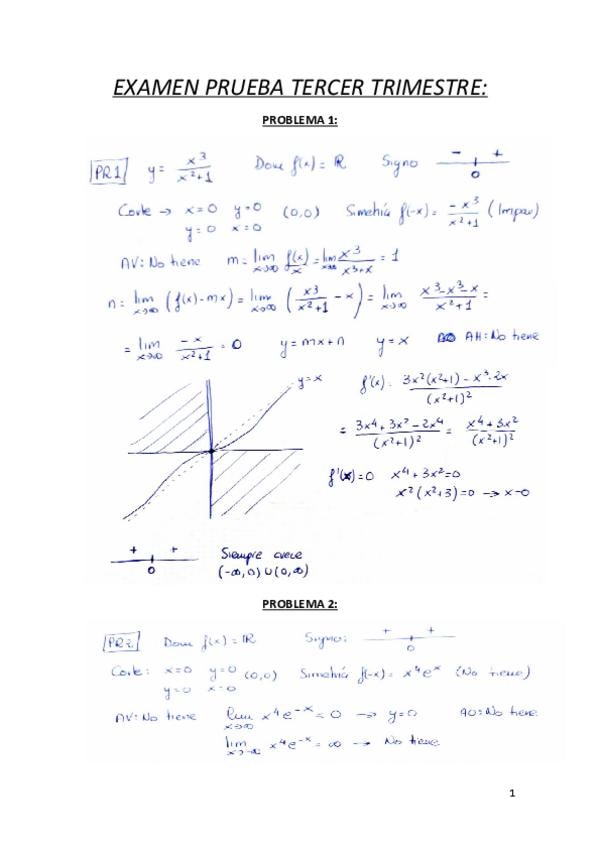 EXAMEN PRUEBA TERCER TRIMESTRE:
PROBLEMA 1:
PR1 y = x³/(x²+1) Dom f(x) = ℝ Signo - + 0
Corte → x=0 y=0 (0,0) Simetría f(-x) = -x³/(x²+1) (Impar)
y=0 x=0
AV: No tiene m = lim x→∞ f(x)/x = lim x→∞ x³/(x³+x) = 1
n = lim x→∞ (f(x) - mx) = lim x→∞ (x³/(x²+1) - x) = lim x→∞ (x³-x³-x)/(x²+1) =
= lim x→∞ -x/(x²+1) = 0 y = mx+n y = x AH: No tiene
y=x
f'(x) = (3x²(x²+1) - x³·2x)/(x²+1)²
= (3x⁴+3x²-2x⁴)/(x²+1)² = (x⁴+3x²)/(x²+1)²
f'(x)=0 x⁴+3x²=0
x²(x²+3)=0 → x=0
+ + 0
Siempre crece
(-∞,0)∪(0,∞)
PROBLEMA 2:
PR2 Dom f(x) = ℝ Signo: + + 0
Corte: x=0 y=0 (0,0) Simetría f(-x) = x⁴eˣ (No tiene)
y=0 x=0
AV: No tiene lim x→∞ x⁴e⁻ˣ = 0 → y=0 AO: No tiene
lim x→-∞ x⁴e⁻ˣ = ∞ → No tiene
1